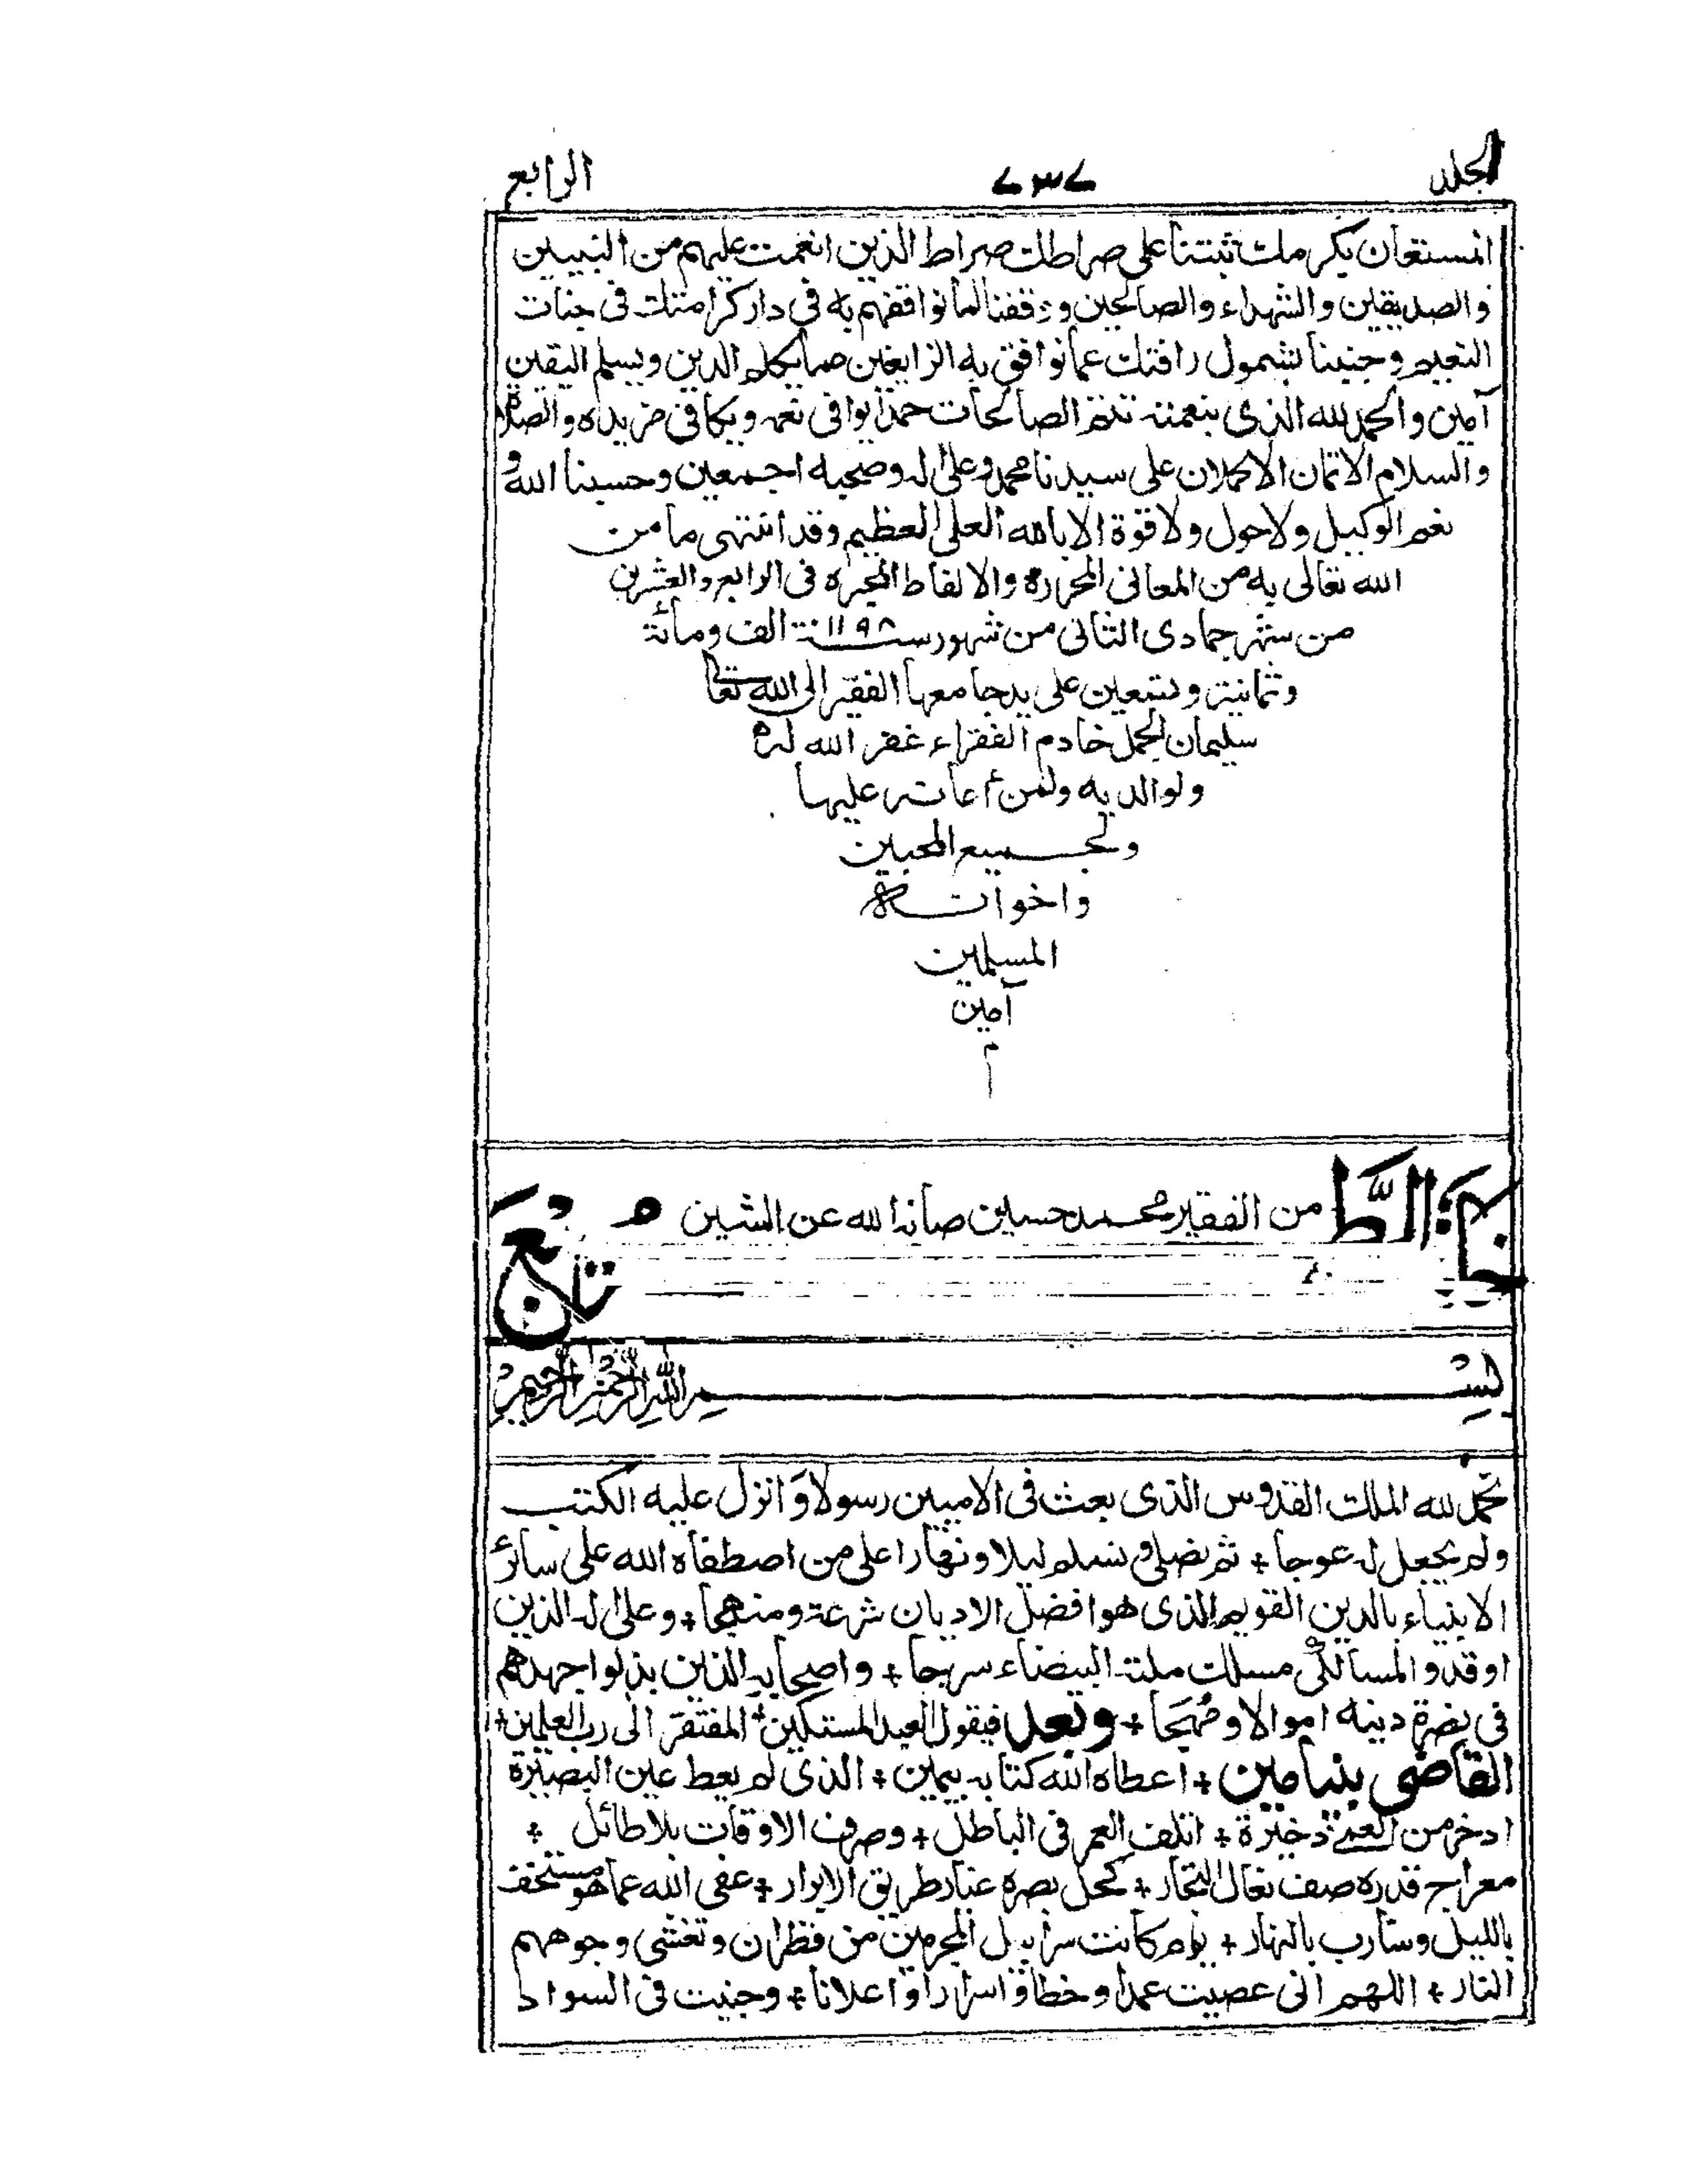 الجلد ٧٣٧ الرابع
المستعان بكرمك ثبتنا على صراطك صراط الذين انعمت عليهم من النبيين
والصديقين والشهداء والصالحين ووفقنا لما نوافقهم به في دار كرامتك في جنات
النعيم وجنبنا بشمول رافتك عما نوافق به الزايغين مما يكلم الدين ويسلم اليقين
آمين والحمد لله الذى بنعمته تتم الصالحات حمدا يوافى نعمه ويكافى مزيده والصلاة
والسلام الاتمان الاكملان على سيدنا محمد وعلى اله وصحبه اجمعين وحسبنا الله و
نعم الوكيل ولا حول ولا قوة الا بالله العلى العظيم وقد انتهى ما من
الله تعالى به من المعانى المحررة والالفاظ المحبره فى الرابع والعشرين
من شهر جمادى الثانى من شهور سنة ١١٩٨ الف ومائة
وثمانية وتسعين على يد جامعها الفقير الى الله تعالى
سليمان الجمل خادم الفقراء غفر الله له
ولوالديه ولمن أعانه عليها
ولجميع المحبين
واخوانه
المسلمين
آمين
م
خاتمة الطبع من الفقير محمد حسين صانه الله عن الشين
بسم الله الرحمن الرحيم
نحمد لله الملك القدوس الذى بعث فى الاميين رسولا وانزل عليه الكتب
ولم يجعل له عوجا + ثم نصلى ونسلم ليلا ونهارا على من اصطفاه الله على سائر
الانبياء بالدين القويم الذى هو افضل الاديان شرعة ومنهجا + وعلى اله الذين
اوقدوا لسالكى مسلك ملته البيضاء سرجا + واصحابه الذين بذلوا جهدهم
فى نصرة دينه اموالا ومُهَجا + وبعد فيقول العبد المستكين + المفتقر الى رب العلمين +
القاضى بنيامين + اعطاه الله كتابه بيمين + الذى لم يعط عين البصيرة
ادخر من ذخيرة + اتلف العمر فى الباطل + وصرف الاوقات بلا طائل +
معراج قدره صف نعال + كحل بصره غبار طريق الابرار + عفى الله عما هو مستخف
بالليل وسارب بالنهار + يوم كانت سرابيل المجرمين من قطران وتغشى وجوههم
النار + اللهم انى عصيت عمدا وخطأ واسرارا واعلانا + وجنيت فى السواد